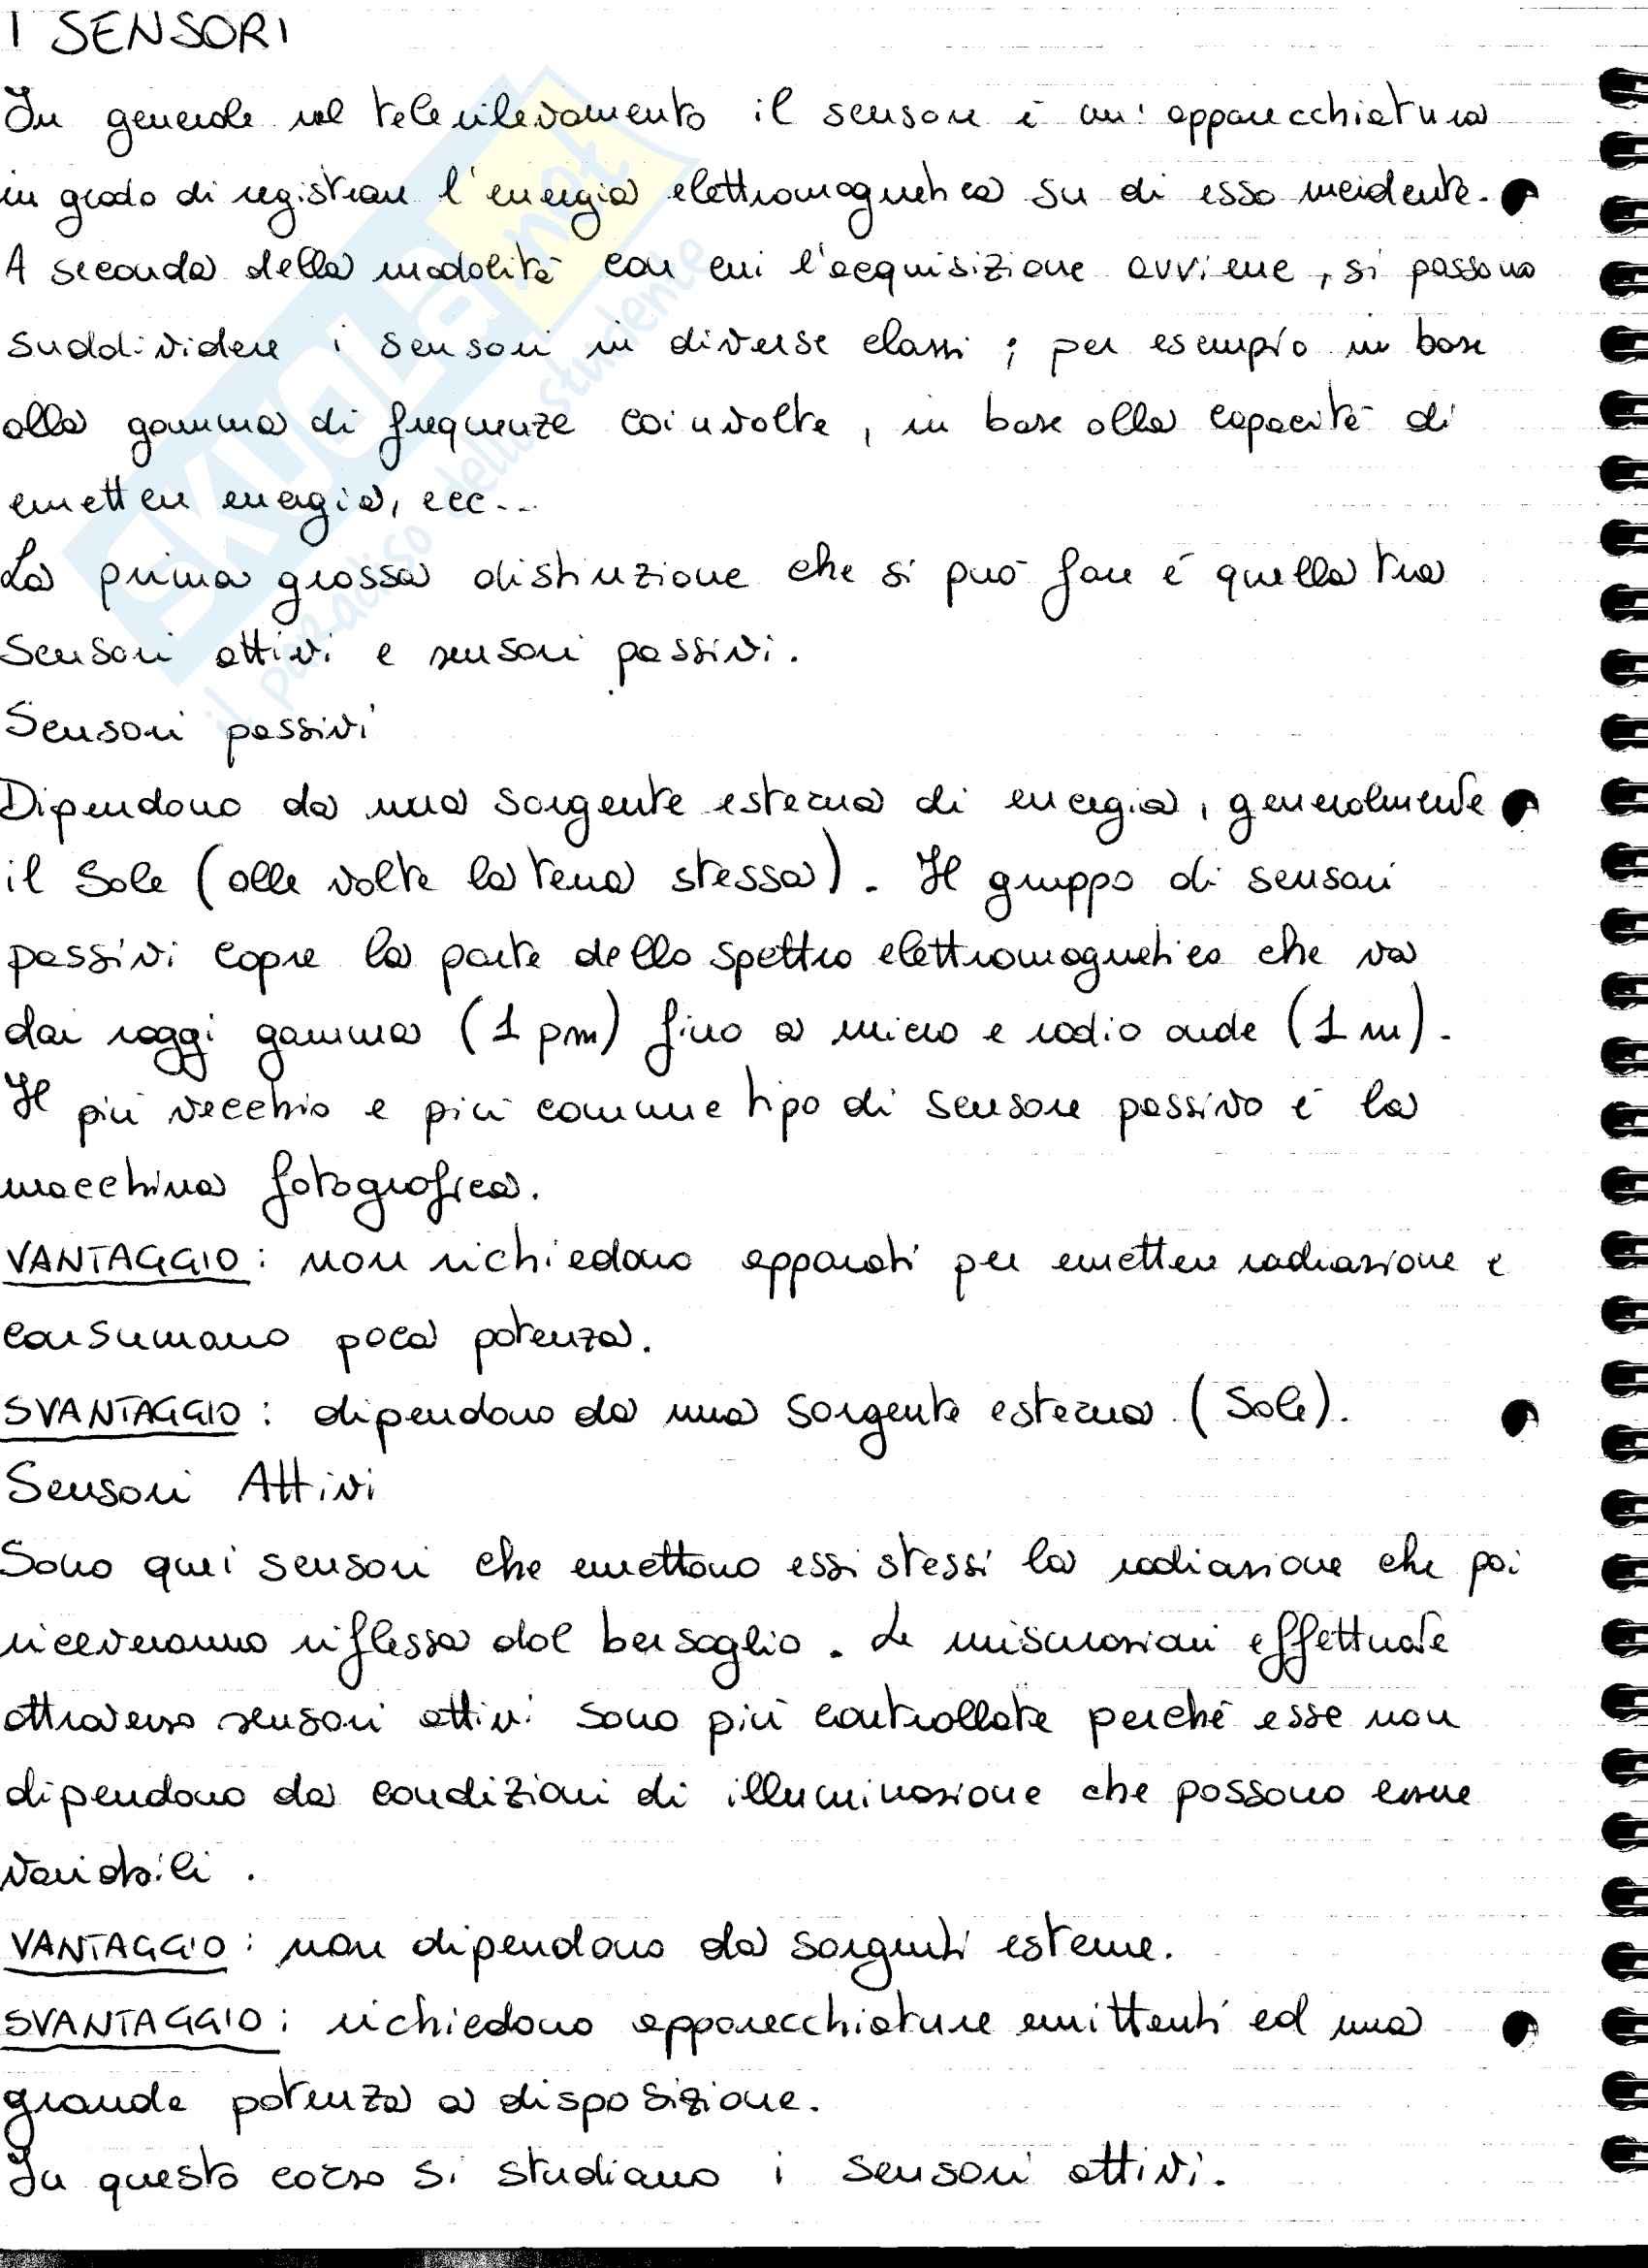 I SENSORI
In generale nel telerilevamento il sensore è un'apparecchiatura
in grado di registrare l'energia elettromagnetica su di esso incidente.
A seconda della modalità con cui l'acquisizione avviene, si possono
suddividere i sensori in diverse classi; per esempio in base
alla gamma di frequenze coinvolte, in base alla capacità di
emettere energia, ecc...
La prima grossa distinzione che si può fare è quella tra
sensori attivi e sensori passivi.
Sensori passivi
Dipendono da una sorgente esterna di energia, generalmente
il Sole (alle volte la terra stessa). Il gruppo di sensori
passivi copre la parte dello spettro elettromagnetico che va
dai raggi gamma (1 pm) fino a micro e radio onde (1 m).
Il più vecchio e più comune tipo di sensore passivo è la
macchina fotografica.
VANTAGGIO: non richiedono apparati per emettere radiazione e
consumano poca potenza.
SVANTAGGIO: dipendono da una sorgente esterna (Sole).
Sensori Attivi
Sono quei sensori che emettono essi stessi la radiazione che poi
riceveranno riflessa dal bersaglio. Le misurazioni effettuate
attraverso sensori attivi sono più controllate perché esse non
dipendono da condizioni di illuminazione che possono essere
variabili.
VANTAGGIO: non dipendono da sorgenti esterne.
SVANTAGGIO: richiedono apparecchiature emittenti ed una
grande potenza a disposizione.
In questo corso si studiano i sensori attivi.
SKUOLA.net
il paradiso dello studente